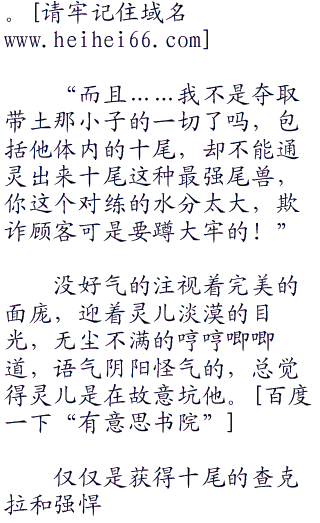 。[请牢记住域名
www.heihei66.com]
“而且……我不是夺取
带土那小子的一切了吗，包
括他体内的十尾，却不能通
灵出来十尾这种最强尾兽，
你这个对练的水分太大，欺
诈顾客可是要蹲大牢的！”
没好气的注视着完美的
面庞，迎着灵儿淡漠的目
光，无尘不满的哼哼唧唧
道，语气阴阳怪气的，总觉
得灵儿是在故意坑他。[百度
一下“有意思书院”]
仅仅是获得十尾的查克
拉和强悍